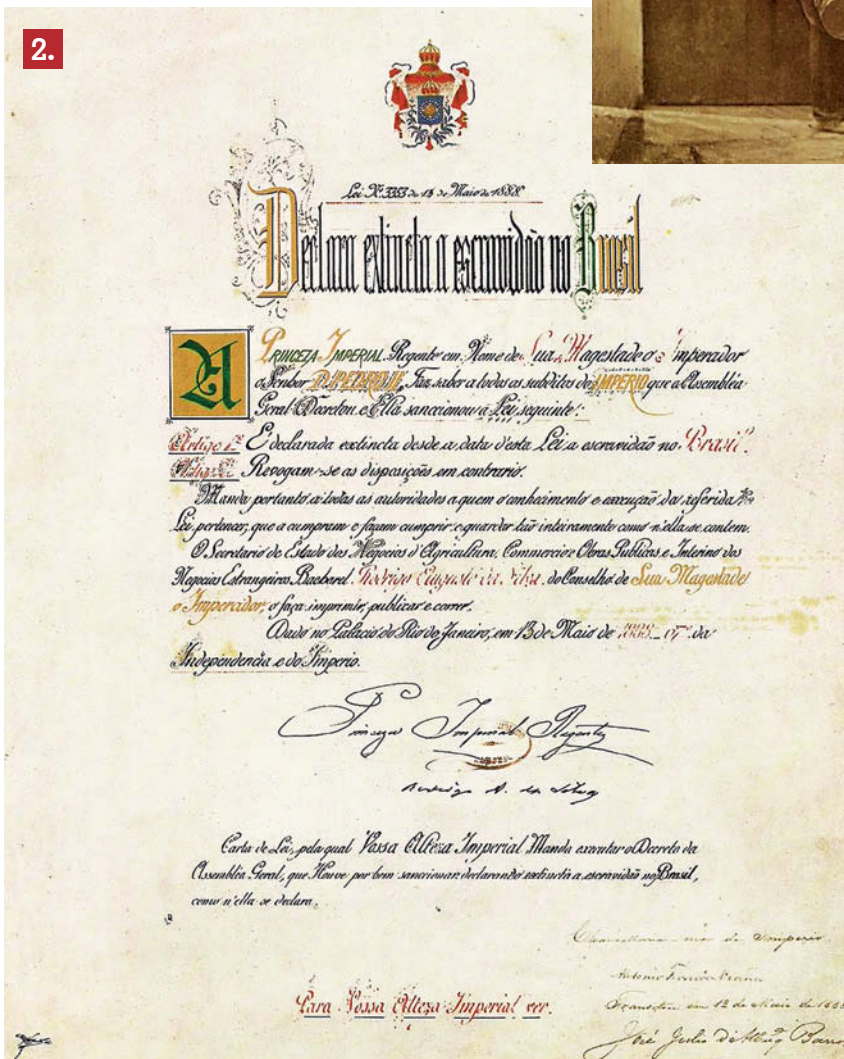 2.
Lei Nº 3353 de 13 de Maio de 1888.
Declara extincta a escravidão no Brasil
A PRINCEZA IMPERIAL Regente em Nome de Sua Magestade o Imperador
o Senhor D. PEDRO II, Faz saber a todos os subditos do IMPERIO que a Assembléa
Geral Decretou e Ella sanccionou a Lei seguinte:
Artigo 1º É declarada extincta desde a data d'esta Lei a escravidão no Brasil.
Revogam-se as disposições em contrario.
Manda portanto a todas as autoridades a quem o conhecimento e execução da referida
Lei pertencer, que a cumpram e façam cumprir e guardar tão inteiramente como n'ella se contem.
O Secretario de Estado dos Negocios d'Agricultura, Commercio e Obras Publicas e Interino dos
Negocios Estrangeiros Bacharel Rodrigo Augusto da Silva, do Conselho de Sua Magestade
o Imperador, o faça imprimir, publicar e correr.
Dado no Palacio do Rio de Janeiro, em 13 de Maio de 1888 – 67º da
Independencia e do Imperio.
Princeza Imperial Regente
Rodrigo A. da Silva
Carta de Lei, pela qual Vossa Alteza Imperial Manda executar o Decreto da
Assembléa Geral, que Houve por bem sanccionar declarando extincta a escravidão no Brasil,
como n'ella se declara.
Para Vossa Alteza Imperial ver.
Chancellaria-mor do Imperio
Antonio Ferreira Vianna
em 13 de Maio de 1888
José Julio de Albuq Barros